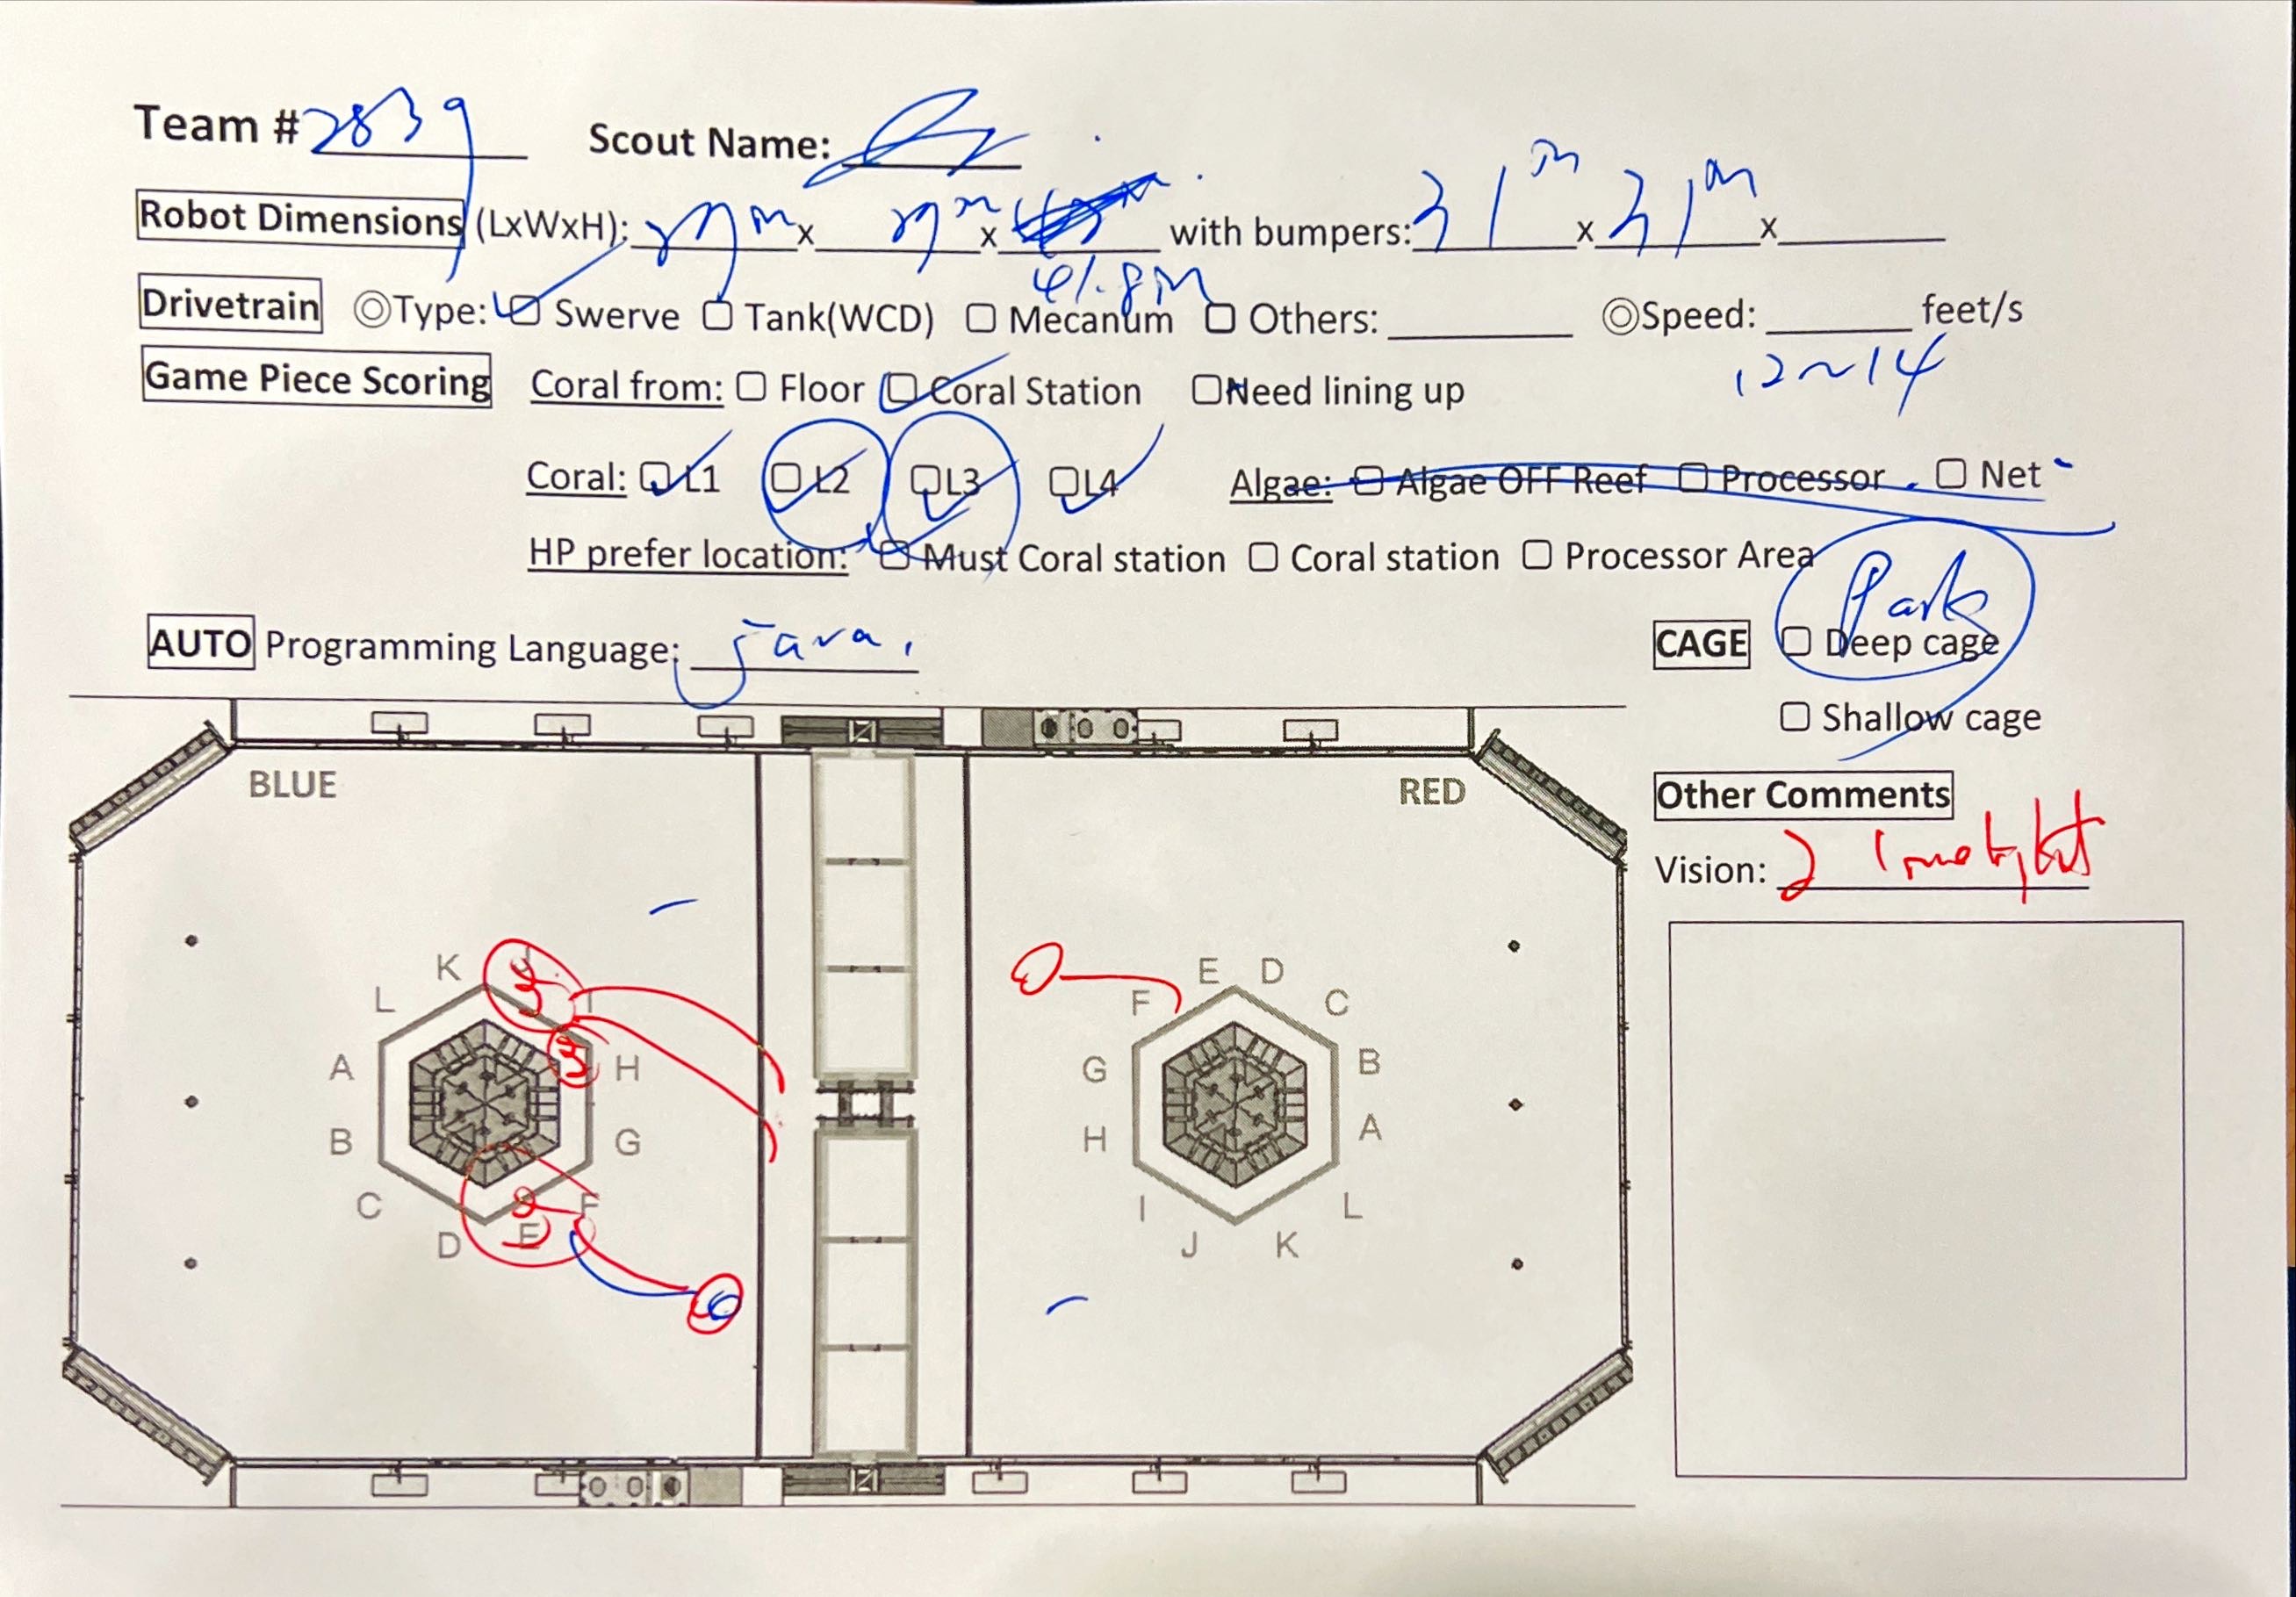 Team # 2839 Scout Name:
Robot Dimensions (LxWxH): x x 41.8in with bumpers: 31in x 31in x
Drivetrain ◎Type: ☑ Swerve ☐ Tank(WCD) ☐ Mecanum ☐ Others: ◎Speed: 12~14 feet/s
Game Piece Scoring Coral from: ☐ Floor ☑ Coral Station ☐ Need lining up
Coral: ☑ L1 ☑ L2 ☑ L3 ☑ L4 Algae: ☐ Algae OFF Reef ☐ Processor ☐ Net
HP prefer location: ☑ Must Coral station ☐ Coral station ☐ Processor Area
Park
AUTO Programming Language: java.
CAGE ☐ Deep cage
☐ Shallow cage
BLUE
RED
Other Comments
Vision: 2
K J
L I
A H
B G
C F
D E
E D
F C
G B
H A
I L
J K